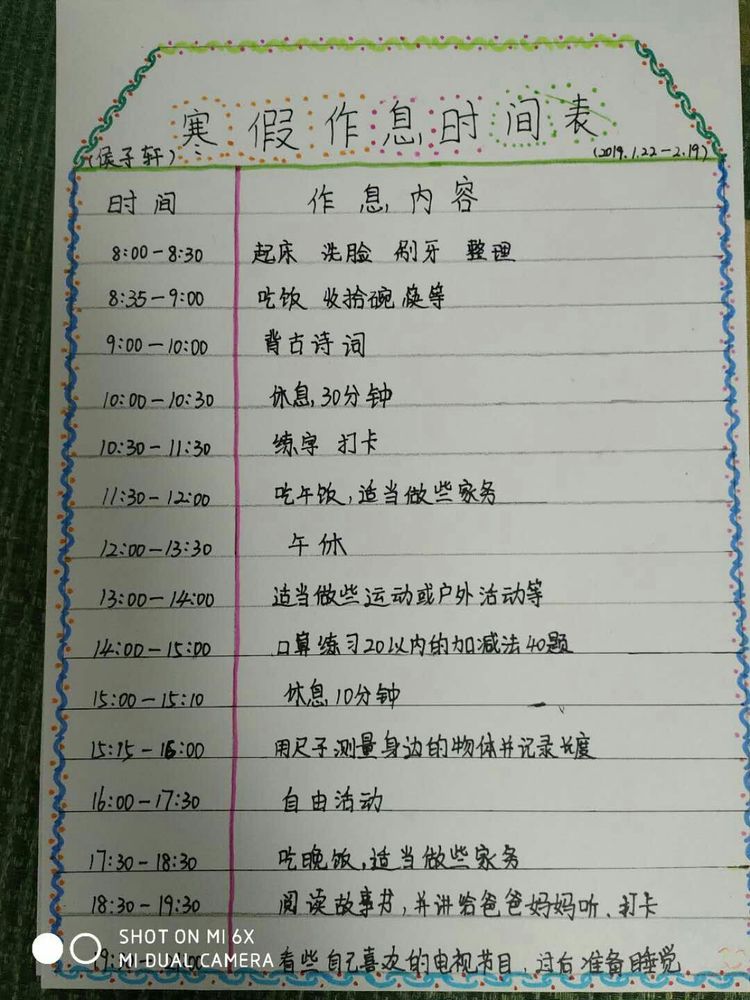 寒假作息时间表
(侯子轩) (2019.1.22-2.19)
时间 作息内容
8:00-8:30 起床 洗脸 刷牙 整理
8:35-9:00 吃饭 收拾碗筷等
9:00-10:00 背古诗词
10:00-10:30 休息30分钟
10:30-11:30 练字 打卡
11:30-12:00 吃午饭,适当做些家务
12:00-13:30 午休
13:00-14:00 适当做些运动或户外活动等
14:00-15:00 口算练习20以内的加减法40题
15:00-15:10 休息10分钟
15:15-16:00 用尺子测量身边的物体并记录长度
16:00-17:30 自由活动
17:30-18:30 吃晚饭,适当做些家务
18:30-19:30 阅读故事书,并讲给爸爸妈妈听、打卡
看些自己喜欢的电视节目,过后准备睡觉
SHOT ON MI 6X
MI DUAL CAMERA